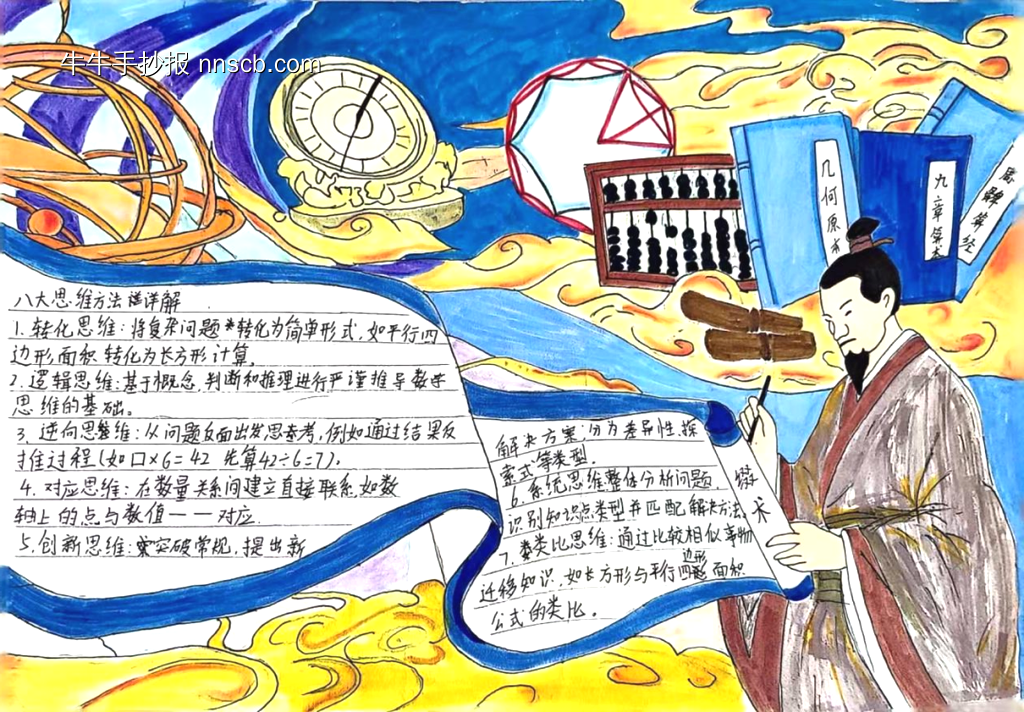 牛牛手抄报 nnscb.com
几何原本
九章算术
周髀算经
八大思维方法详解
1. 转化思维：将复杂问题转化为简单形式，如平行四
边形面积转化为长方形计算。
2. 逻辑思维：基于概念、判断和推理进行严谨推导数学
思维的基础。
3. 逆向思维：从问题反面出发思考，例如通过结果反
推过程（如口×6=42 先算42÷6=7）。
4. 对应思维：在数量关系间建立直接联系，如数
轴上的点与数值一一对应.
5. 创新思维：突破常规，提出新
解决方案，分为差异性、探
索式等类型.
6. 系统思维整体分析问题，
识别知识点类型并匹配解决方法.
7. 类比思维：通过比较相似事物
迁移知识，如长方形与平行四边形面积
公式的类比。
术